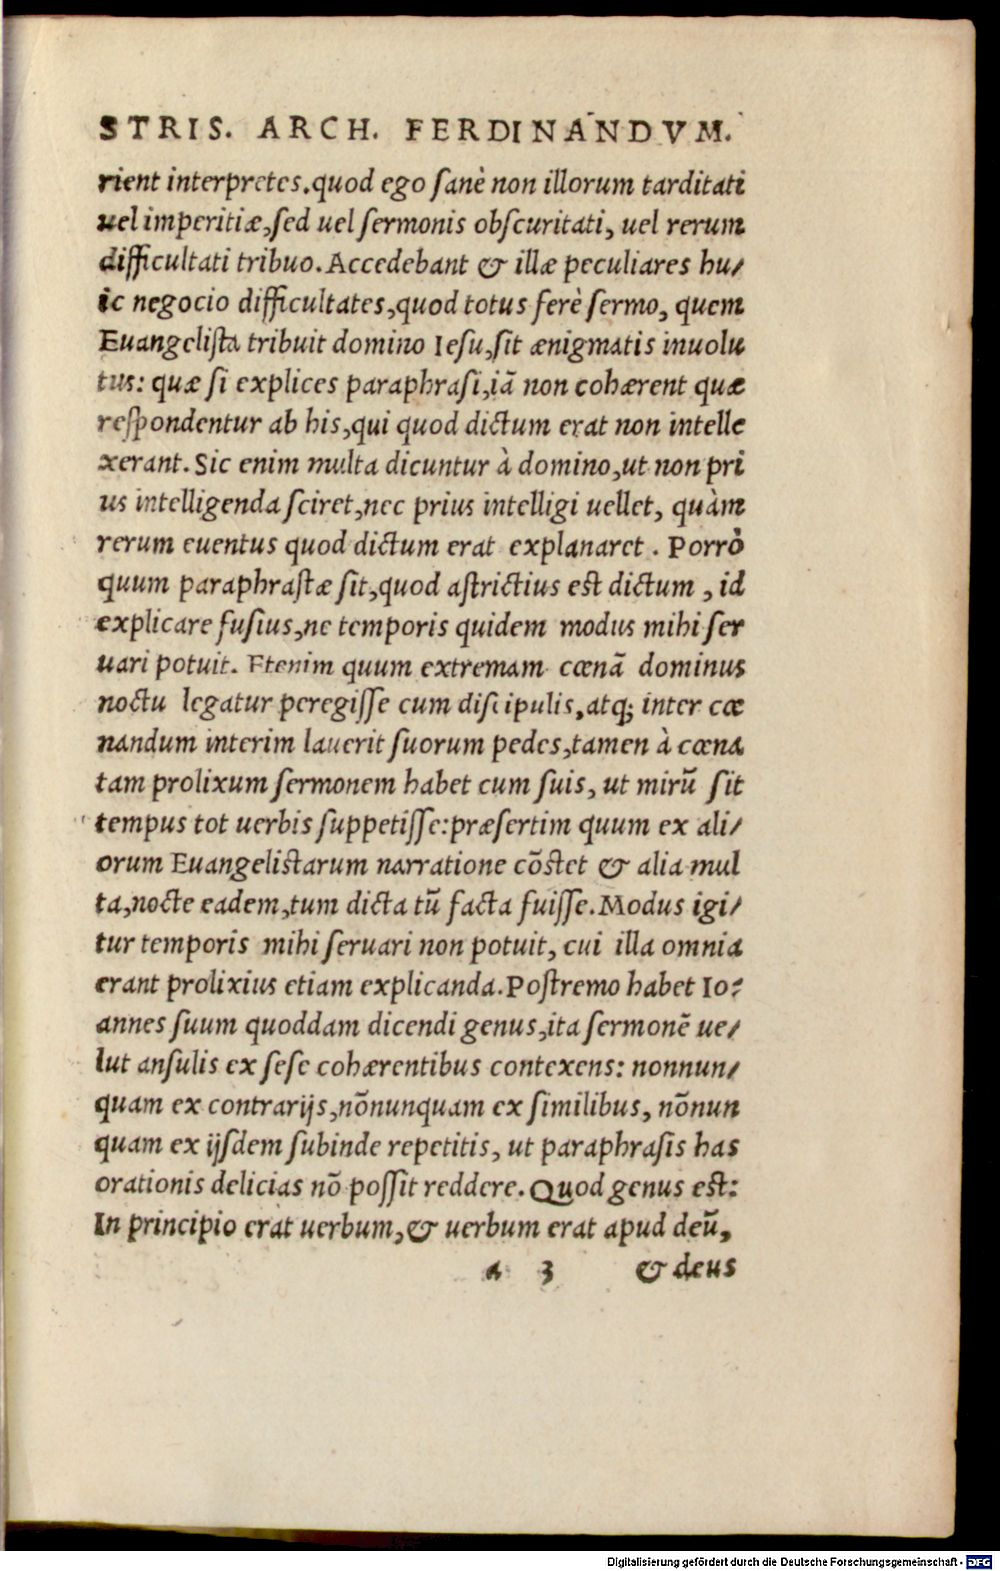 STRIS. ARCH. FERDINANDVM.
rient interpretes. quod ego ſanè non illorum tarditati
uel imperitiæ, ſed uel ſermonis obſcuritati, uel rerum
difficultati tribuo. Accedebant & illæ peculiares hu-
ic negocio difficultates, quod totus ferè ſermo, quem
Euangeliſta tribuit domino Ieſu, ſit ænigmatis inuolu
tus: quæ ſi explices paraphraſi, iā non cohærent quæ
reſpondentur ab his, qui quod dictum erat non intelle
xerant. Sic enim multa dicuntur à domino, ut non pri
us intelligenda ſciret, nec prius intelligi uellet, quàm
rerum euentus quod dictum erat explanaret. Porrò
quum paraphraſtæ ſit, quod aſtrictius est dictum, id
explicare fuſius, ne temporis quidem modus mihi ſer
uari potuit. Etenim quum extremam cœnā dominus
noctu legatur peregiſſe cum diſcipulis, atq; inter cœ
nandum interim lauerit ſuorum pedes, tamen à cœna
tam prolixum ſermonem habet cum ſuis, ut mirū ſit
tempus tot uerbis ſuppetiſſe: præſertim quum ex ali-
orum Euangelistarum narratione cōstet & alia mul
ta, nocte eadem, tum dicta tū facta fuiſſe. Modus igi-
tur temporis mihi ſeruari non potuit, cui illa omnia
erant prolixius etiam explicanda. Poſtremo habet Io-
annes ſuum quoddam dicendi genus, ita ſermonē ue-
lut anſulis ex ſeſe cohærentibus contexens: nonnun-
quam ex contrarijs, nōnunquam ex ſimilibus, nōnun
quam ex ijſdem ſubinde repetitis, ut paraphraſis has
orationis delicias nō poſſit reddere. Quod genus est:
In principio erat uerbum, & uerbum erat apud deū,
a 3 & deus
Digitalisierung gefördert durch die Deutsche Forschungsgemeinschaft - DFG